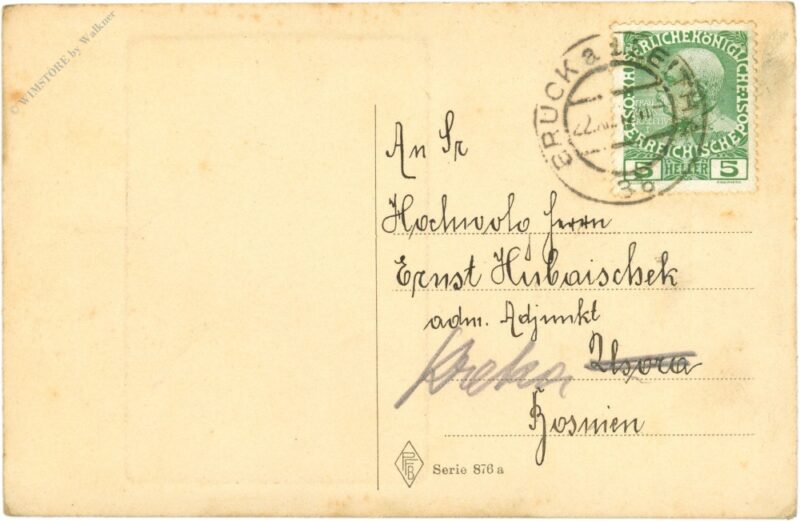 © WIMSTORE by Walkner
BRUCK a. d. LEITHA
22.XII
8d
KAISERLICHEKÖNIGLICHE
ÖSTERREICHISCHE POST
FRANZ
5 HELLER 5
An Sr
Hochwolg Herrn
Ernst Hubaischek
adm. Adjunkt
Kreka Usora
Bosnien
PFB
Serie 876 a